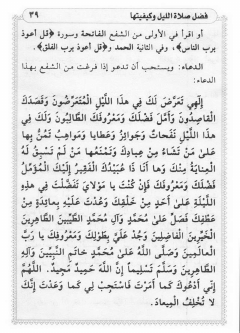 فضل صلاة الليل وكيفيتها ٣٩
أو اقرأ في الأولى من الشفع الفاتحة وسورة ﴿قل أعوذ
برب الناس﴾، وفي الثانية الحمد و﴿قل أعوذ برب الفلق﴾.
الدعاء: ويستحب أن تدعو إذا فرغت من الشفع بهذا
الدعاء:
إِلٰهِي تَعَرَّضَ لَكَ فِي هٰذَا اللَّيْلِ الْمُتَعَرِّضُونَ وَقَصَدَكَ
الْقَاصِدُونَ وَأَمَّلَ فَضْلَكَ وَمَعْرُوفَكَ الطَّالِبُونَ وَلَكَ فِي
هٰذَا اللَّيْلِ نَفَحَاتٌ وَجَوَائِزُ وَعَطَايَا وَمَوَاهِبُ تَمُنُّ بِهَا
عَلَىٰ مَنْ تَشَاءُ مِنْ عِبَادِكَ وَتَمْنَعُهَا مَنْ لَمْ تَسْبِقْ لَهُ
الْعِنَايَةُ مِنْكَ وَهَا أَنَا ذَا عُبَيْدُكَ الْفَقِيرُ إِلَيْكَ الْمُؤَمِّلُ
فَضْلَكَ وَمَعْرُوفَكَ فَإِنْ كُنْتَ يَا مَوْلَايَ تَفَضَّلْتَ فِي هٰذِهِ
اللَّيْلَةِ عَلَىٰ أَحَدٍ مِنْ خَلْقِكَ وَعُدْتَ عَلَيْهِ بِعَائِدَةٍ مِنْ
عَطْفِكَ فَصَلِّ عَلَىٰ مُحَمَّدٍ وَآلِ مُحَمَّدٍ الطَّيِّبِينَ الطَّاهِرِينَ
الْخَيِّرِينَ الْفَاضِلِينَ وَجُدْ عَلَيَّ بِطَوْلِكَ وَمَعْرُوفِكَ يَا رَبَّ
الْعَالَمِينَ وَصَلَّى اللَّهُ عَلَىٰ مُحَمَّدٍ خَاتَمِ النَّبِيِّينَ وَآلِهِ
الطَّاهِرِينَ وَسَلَّمَ تَسْلِيماً إِنَّ اللَّهَ حَمِيدٌ مَجِيدٌ. اللَّهُمَّ
إِنِّي أَدْعُوكَ كَمَا أَمَرْتَ فَاسْتَجِبْ لِي كَمَا وَعَدْتَ إِنَّكَ
لَا تُخْلِفُ الْمِيعَادَ.